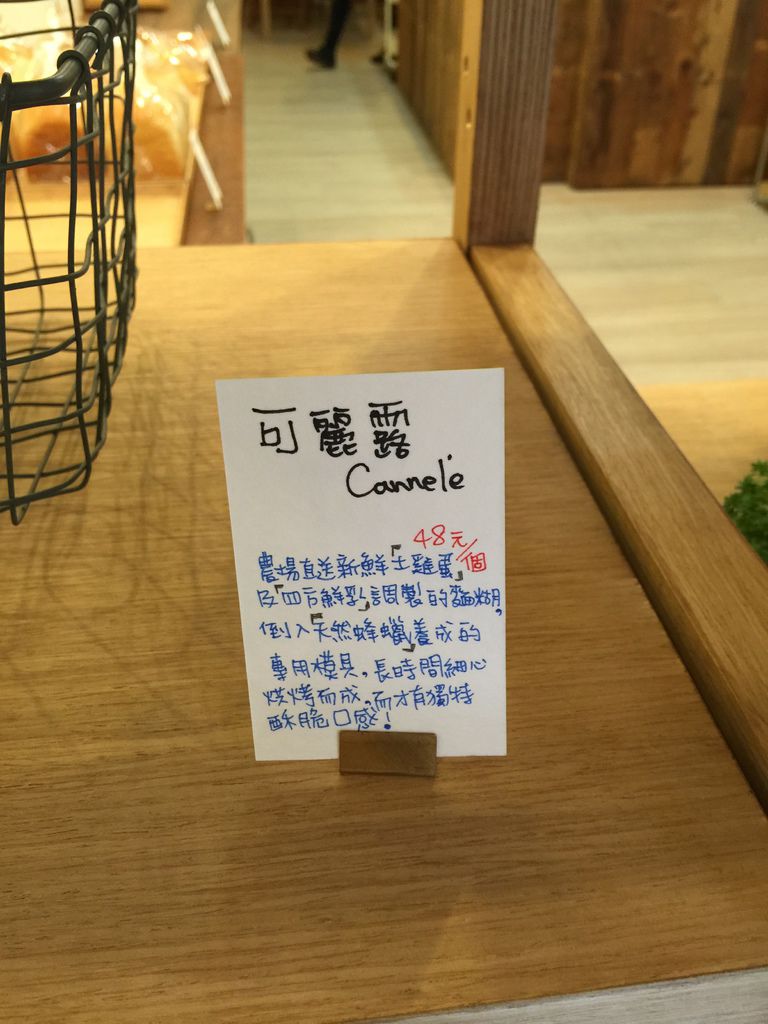 可麗露
Cannelé
48元/個
農場直送新鮮「土雞蛋」
及「四方鮮乳」調製的麵糊,
倒入「天然蜂蠟」養成的
專用模具,長時間細心
烘烤而成,而才有獨特
酥脆口感!